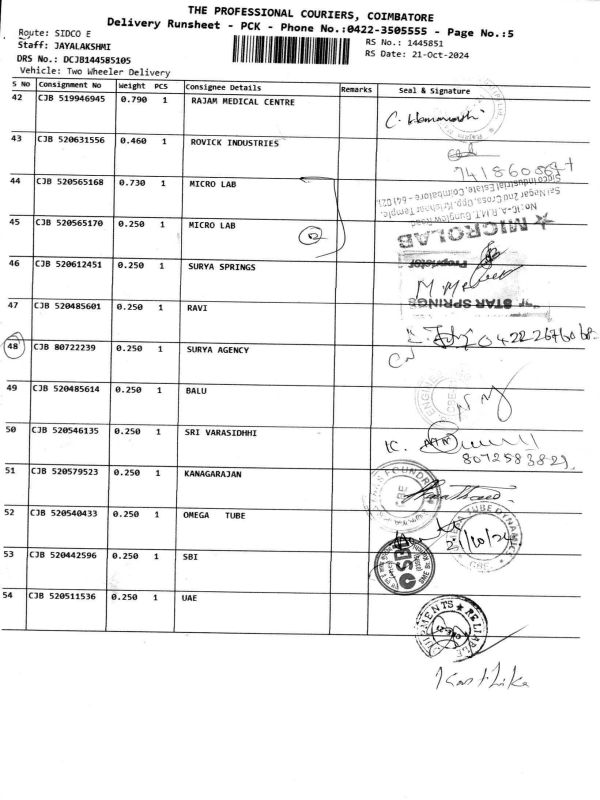 THE PROFESSIONAL COURIERS, COIMBATORE
Delivery Runsheet - PCK - Phone No.:0422-3505555 - Page No.:5
Route: SIDCO E
Staff: JAYALAKSHMI
DRS No.: DCJB144585105
Vehicle: Two Wheeler Delivery
RS No.: 1445851
RS Date: 21-Oct-2024
S No Consignment No Weight PCS Consignee Details Remarks Seal & Signature
42 CJB 519946945 0.790 1 RAJAM MEDICAL CENTRE
43 CJB 520631556 0.460 1 ROVICK INDUSTRIES
44 CJB 520565168 0.730 1 MICRO LAB
Sidco Industrial Estate, Coimbatore - 641 021.
Sai Nagar 2nd Cross, Opp. Krishnar Temple,
45 CJB 520565170 0.250 1 MICRO LAB 2
★ MICROLAB
Proprietor
46 CJB 520612451 0.250 1 SURYA SPRINGS
STAR SPRINGS
47 CJB 520485601 0.250 1 RAVI
48 CJB 80722239 0.250 1 SURYA AGENCY
49 CJB 520485614 0.250 1 BALU
50 CJB 520546135 0.250 1 SRI VARASIDHHI
51 CJB 520579523 0.250 1 KANAGARAJAN
52 CJB 520540433 0.250 1 OMEGA TUBE
TUBE DYNAMICS
CBE
53 CJB 520442596 0.250 1 SBI
SBI
54 CJB 520511536 0.250 1 UAE
RELIABLE